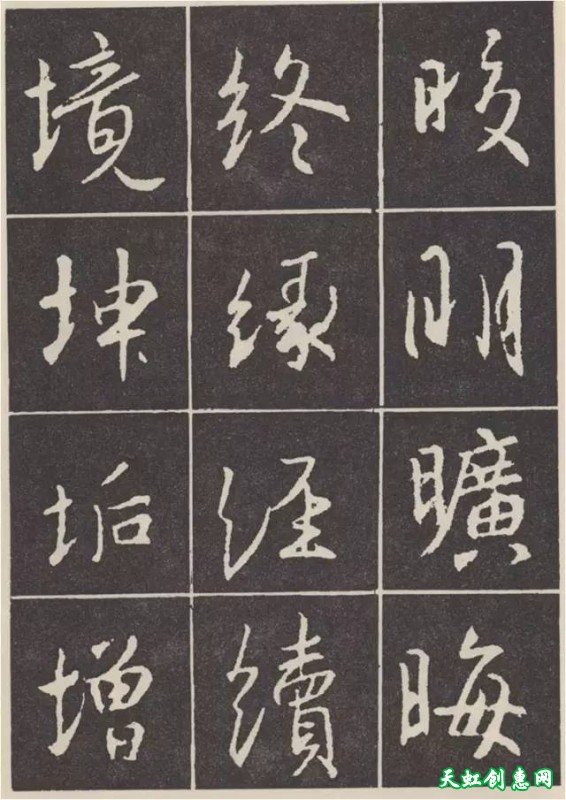 明曠晦
終緣經續
境坤垢增
天虹创惠网